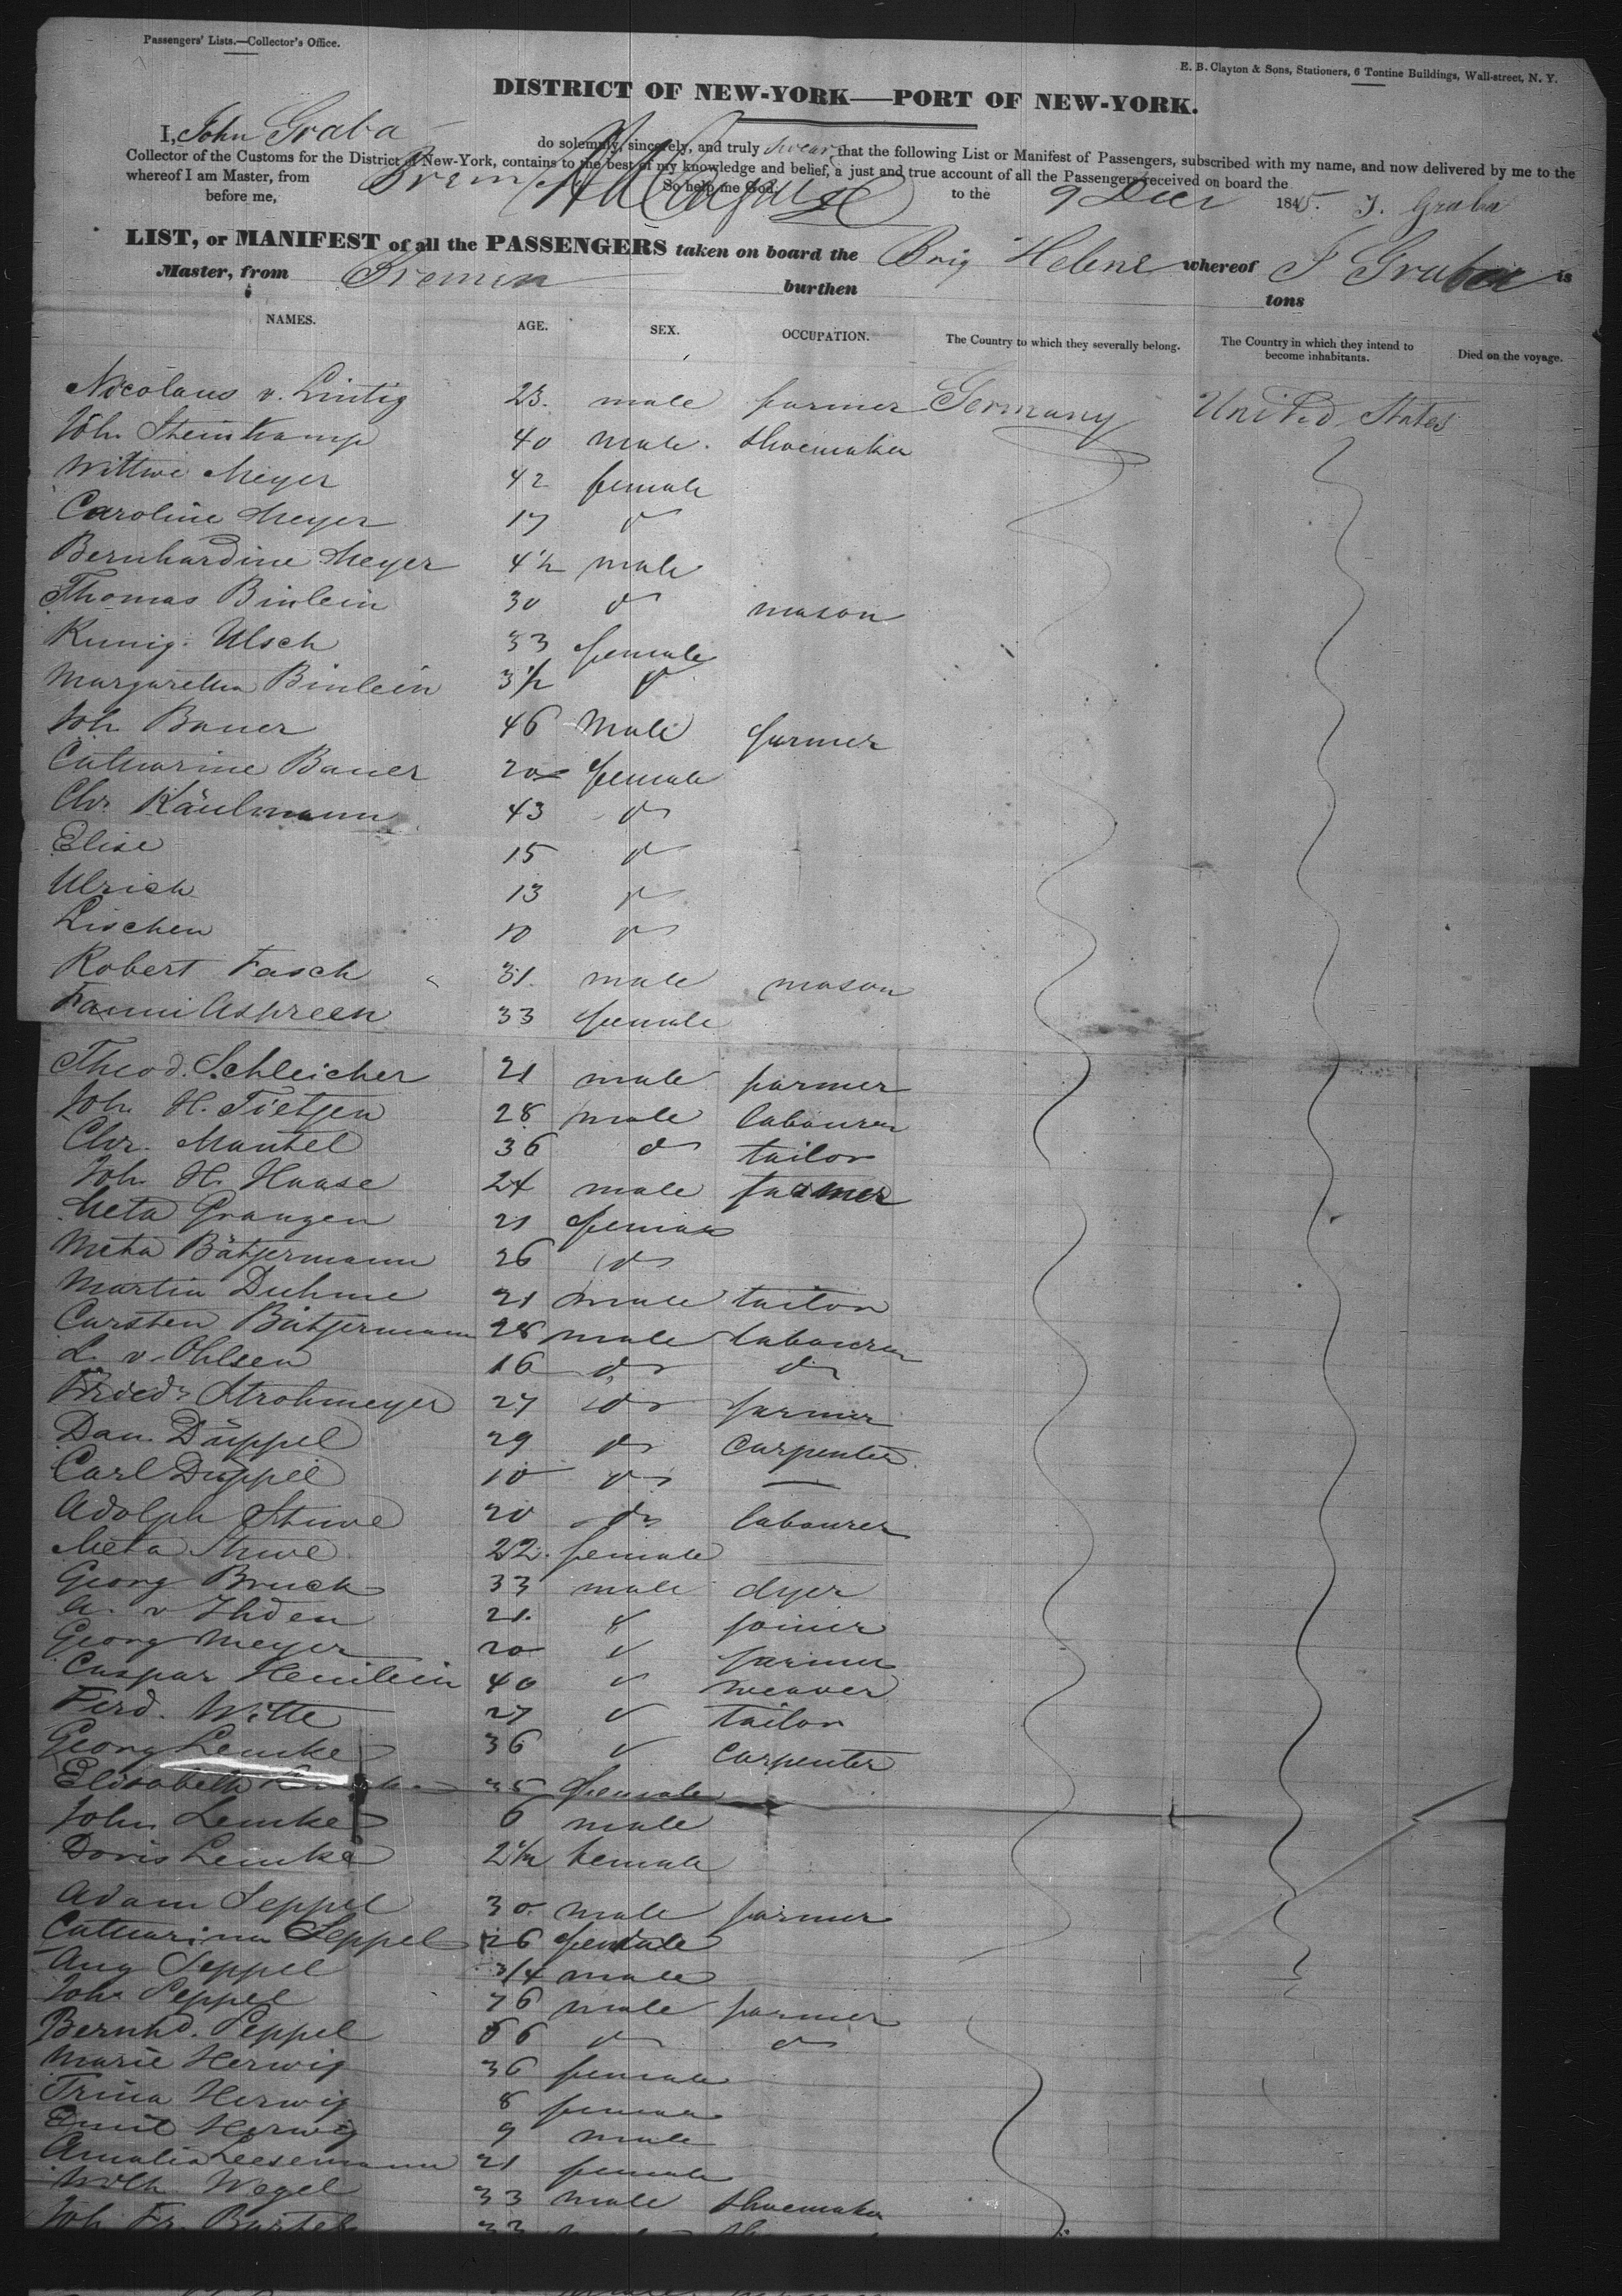 Passengers' Lists.—Collector's Office.
E. B. Clayton & Sons, Stationers, 6 Tontine Buildings, Wall-street, N. Y.
DISTRICT OF NEW-YORK—PORT OF NEW-YORK.
I, John Graba do solemnly, sincerely, and truly swear that the following List or Manifest of Passengers, subscribed with my name, and now delivered by me to the
Collector of the Customs for the District of New-York, contains to the best of my knowledge and belief, a just and true account of all the Passengers received on board the
whereof I am Master, from Bremen So help me God.
before me, to the 9 Dec 1845. J. Graba
LIST, or MANIFEST of all the PASSENGERS taken on board the Brig Helene whereof J Graba is
Master, from Bremen burthen tons
NAMES. AGE. SEX. OCCUPATION. The Country to which they severally belong. The Country in which they intend to become inhabitants. Died on the voyage.
Nicolaus v. Lintig 23. male farmer Germany United States
Joh. Steinkamp 40 male. shoemaker
Wittwe Meyer 42 female
Caroline Meyer 17 do
Bernhardine Meyer 4½ male
Thomas Binlein 30 do mason
Kunig. Ulsch 33 female
Margaretha Binlein 3½ do
Joh. Bauer 46 male farmer
Catharine Bauer 20 female
Chr. Käulmann 43 do
Elise 15 do
Ulrich 13 do
Lischen 10 do
Robert Fasch 31. male mason
Fanni 33 female
Theod. Schleicher 21 male farmer
Joh. H. Tietjen 28 male labourer
Chr. Mantel 36 do tailor
Joh. H. Haase 24 male farmer
Meta Grangen 21 female
Meta Bätjermann 26 do
Martin Duhme 21 male tailor
Carsten Bätjermann 28 male labourer
L. v. Ohlsen 16 do do
Friedr Strohmeyer 27 do farmer
Dan. Düppel 29 do carpenter
Carl Düppel 10 do —
Adolph Stuve 20 do labourer
Meta Stuve 22. female
Georg Bruck 33 male dyer
v Ihden 21. joiner
Georg Meyer 20 farmer
Caspar Henilein 40 weaver
Ferd. Witte 27 tailor
Georg Lemke 36 carpenter
Elisabeth 35 female
John Lemke 6 male
Doris Lemke 2½ female
Adam Seppel 30. male farmer
Catharina Seppel 26 female
Aug Seppel 3/4 male
Joh. Seppel 76 male farmer
Bernhd. Seppel 66 do do
Marie Herwig 36 female
Trina Herwig 8 female
Emil Herwig 9 male
Amalia Leesemann 21 female
Wilh. Wegel 33 male shoemaker
Joh. Fr. Bartels 33